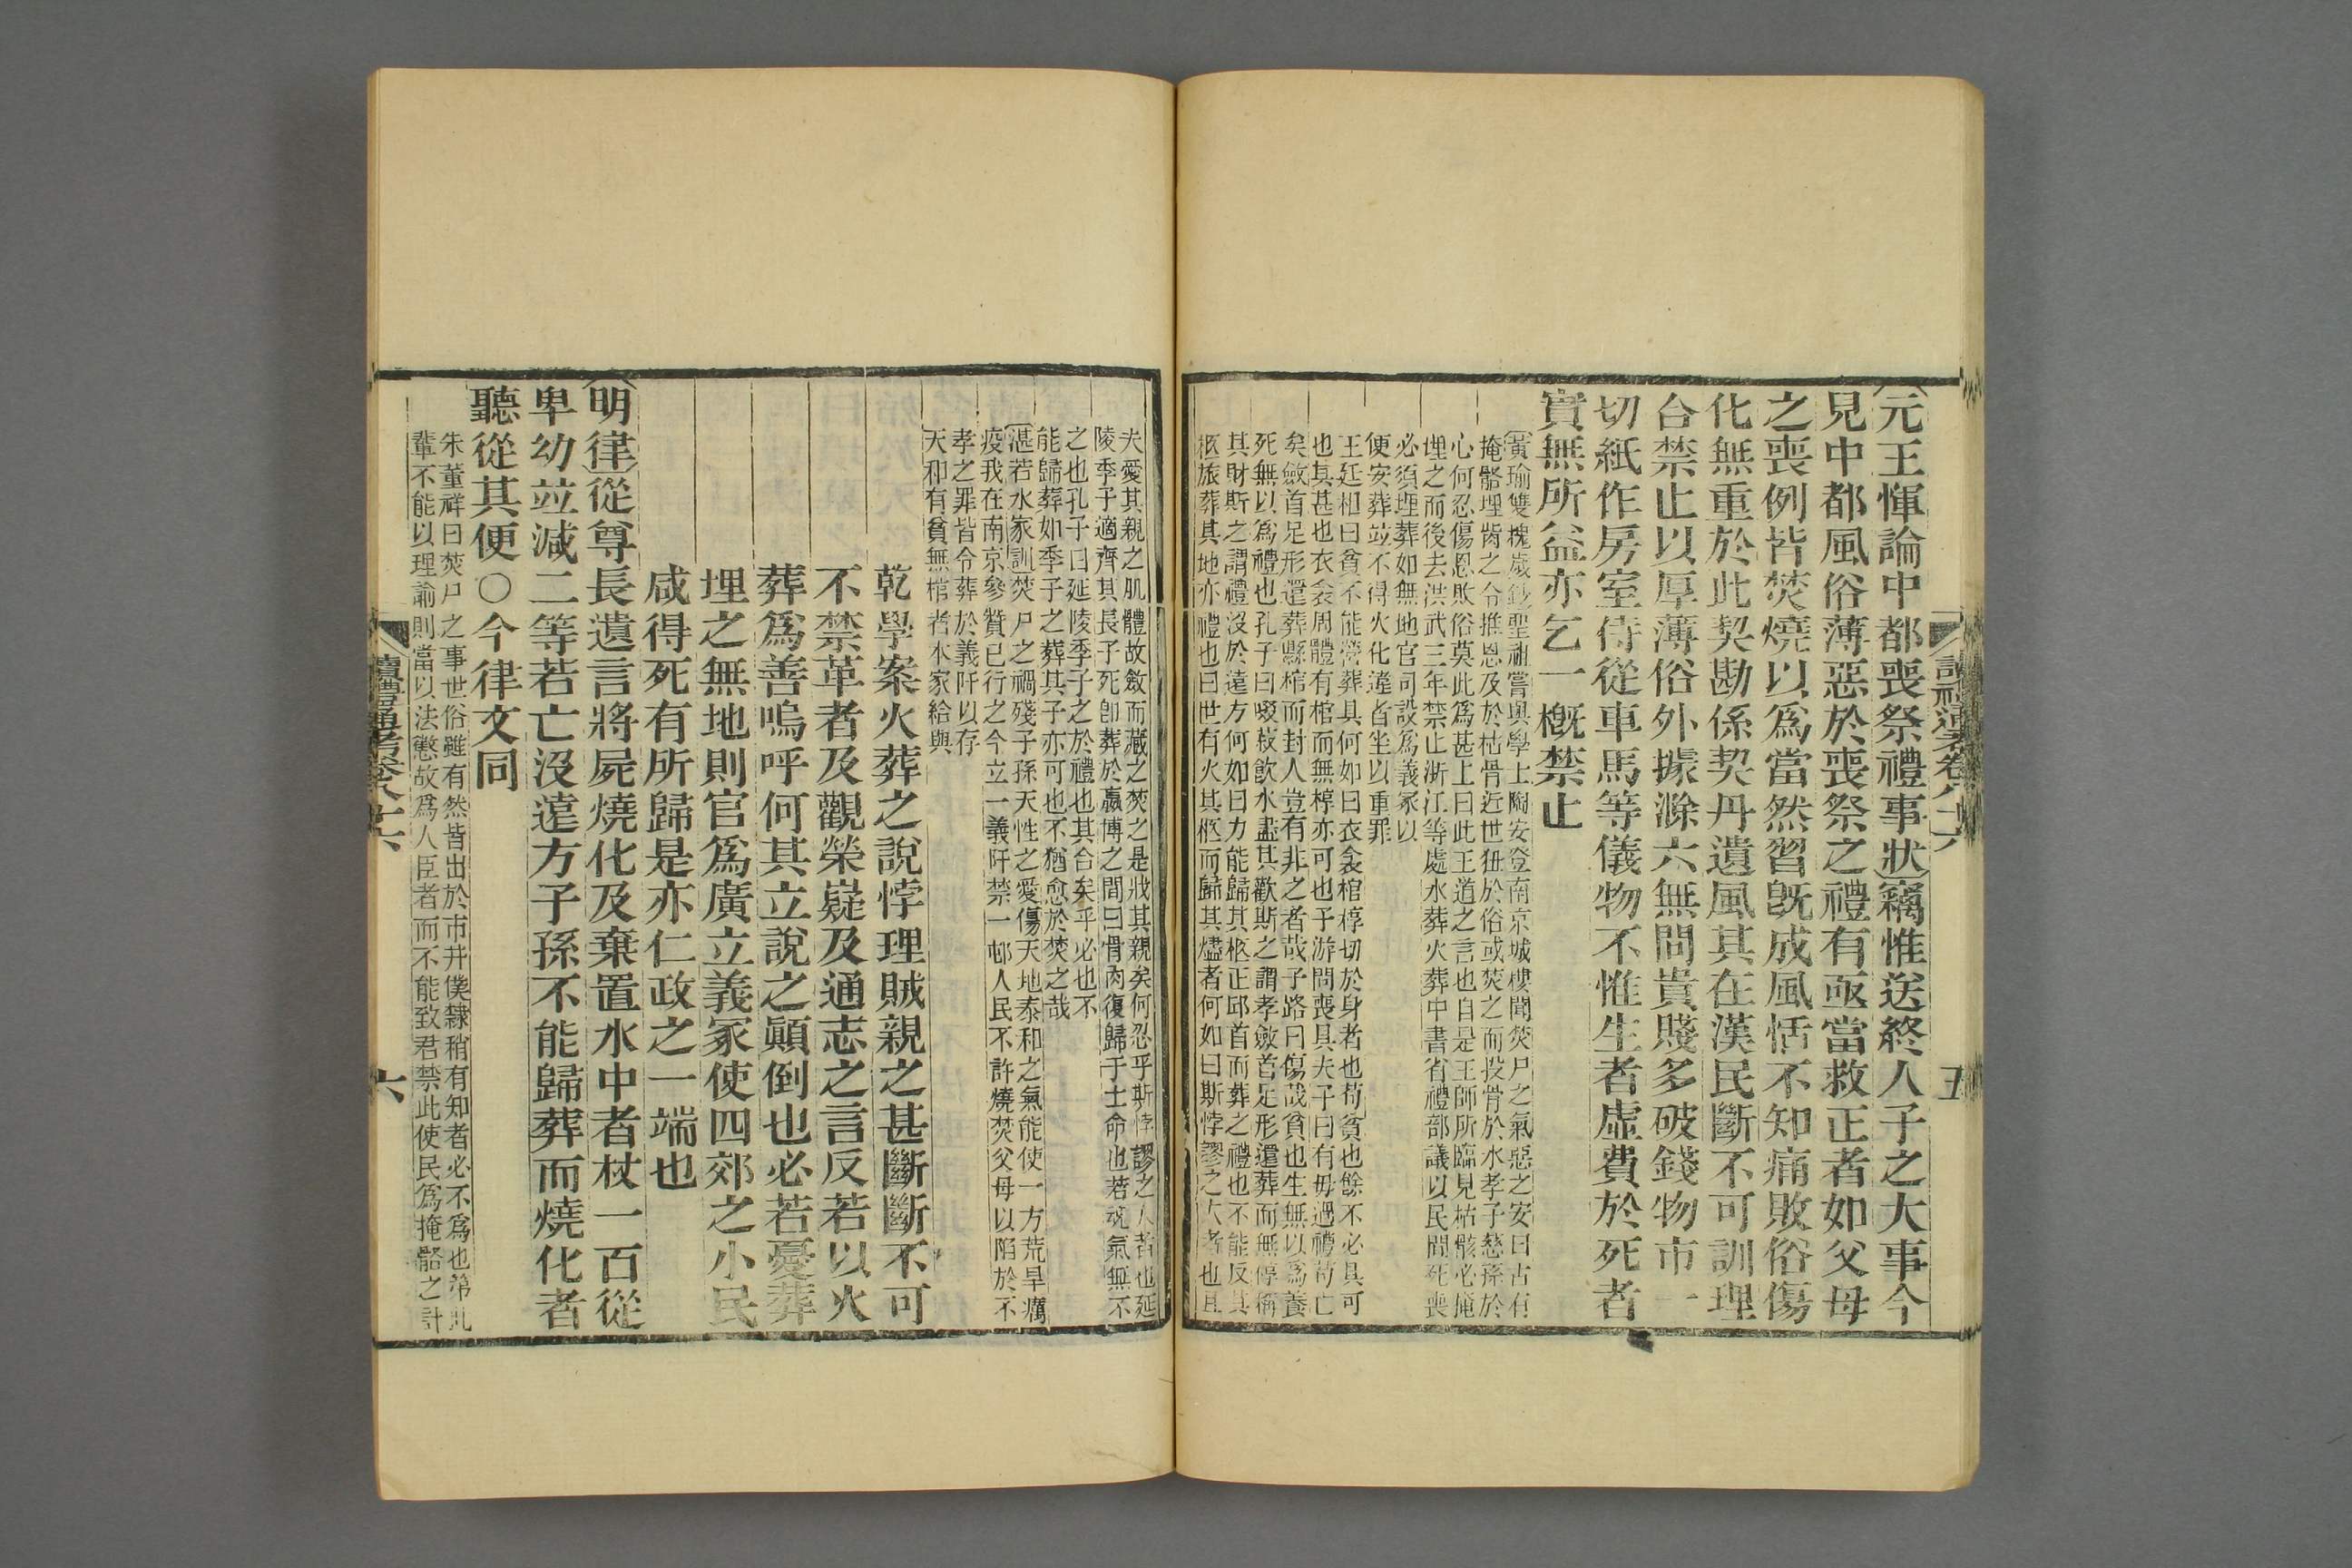 元王惲論中都喪祭禮事狀竊惟送終人子之大事今
見中都風俗薄惡於喪祭之禮有亟當救正者如父母
之喪例皆焚燒以為當然習既成風恬不知痛敗俗傷
化無重於此契勘係契丹遺風其在漢民斷不可訓理
合禁止以厚薄俗外據滁六無問貴賤多破錢物市一
切紙作房室侍從車馬等儀物不惟生者虛費於死者
實無所益亦乞一槪禁止
黃瑜雙槐歲鈔聖祖嘗與學士陶安登南京城樓聞焚尸之氣惡之安曰古有
掩骼埋胔之令推恩及於枯骨近世狃於俗或焚之而投骨於水孝子慈孫於
心何忍傷恩敗俗莫此爲甚上曰此王道之言也自是王師所臨見枯骸必掩
埋之而後去洪武三年禁止浙江等處水葬火葬中書省禮部議以民間死喪
必須埋葬如無地官司設爲義冢以
便安葬竝不得火化違者坐以重罪
王廷相曰貧不能營葬具何如曰衣衾棺椁切於身者也苟貧也餘不必具可
也其甚也衣衾周體有棺而無椁亦可也子游問喪具夫子曰有毋過禮苟亡
矣斂首足形還葬縣棺而封人豈有非之者哉子路曰傷哉貧也生無以爲養
死無以爲禮也孔子曰啜菽飲水盡其歡斯之謂孝斂首足形還葬而無椁稱
其財斯之謂禮沒於遠方何如曰力能歸其柩正邱首而葬之禮也不能反其
柩旅葬其地亦禮也曰世有火其柩而歸其燼者何如曰斯悖謬之大者也且
讀禮通考卷八十六
五
夫愛其親之肌體故斂而藏之焚之是戕其親矣何忍乎斯悖謬之人者也延
陵季子適齊其長子死卽葬於嬴博之間曰骨肉復歸于土命也若魂氣無不
之也孔子曰延陵季子之於禮也其合矣乎必也不
能歸葬如季子之葬其子亦可也不猶愈於焚之哉
湛若水家訓焚尸之禍殘子孫天性之愛傷天地泰和之氣能使一方荒旱癘
疫我在南京參贊已行之今立一義阡禁一邨人民不許燒焚父母以陷於不
孝之罪皆令葬於義阡以存
天和有貧無棺者本家給與
乾學案火葬之說悖理賊親之甚斷斷不可
不禁革者及觀榮嶷及通志之言反若以火
葬爲善嗚呼何其立說之顚倒也必若憂葬
埋之無地則官爲廣立義冢使四郊之小民
咸得死有所歸是亦仁政之一端也
明律從尊長遺言將屍燒化及棄置水中者杖一百從
卑幼竝減二等若亡沒遠方子孫不能歸葬而燒化者
聽從其便〇今律文同
朱董祥曰焚尸之事世俗雖有然皆出於市井僕隸稍有知者必不爲也第此
輩不能以理諭則當以法懲故爲人臣者而不能致君禁此使民爲掩骼之計
讀禮通考卷八十六
六